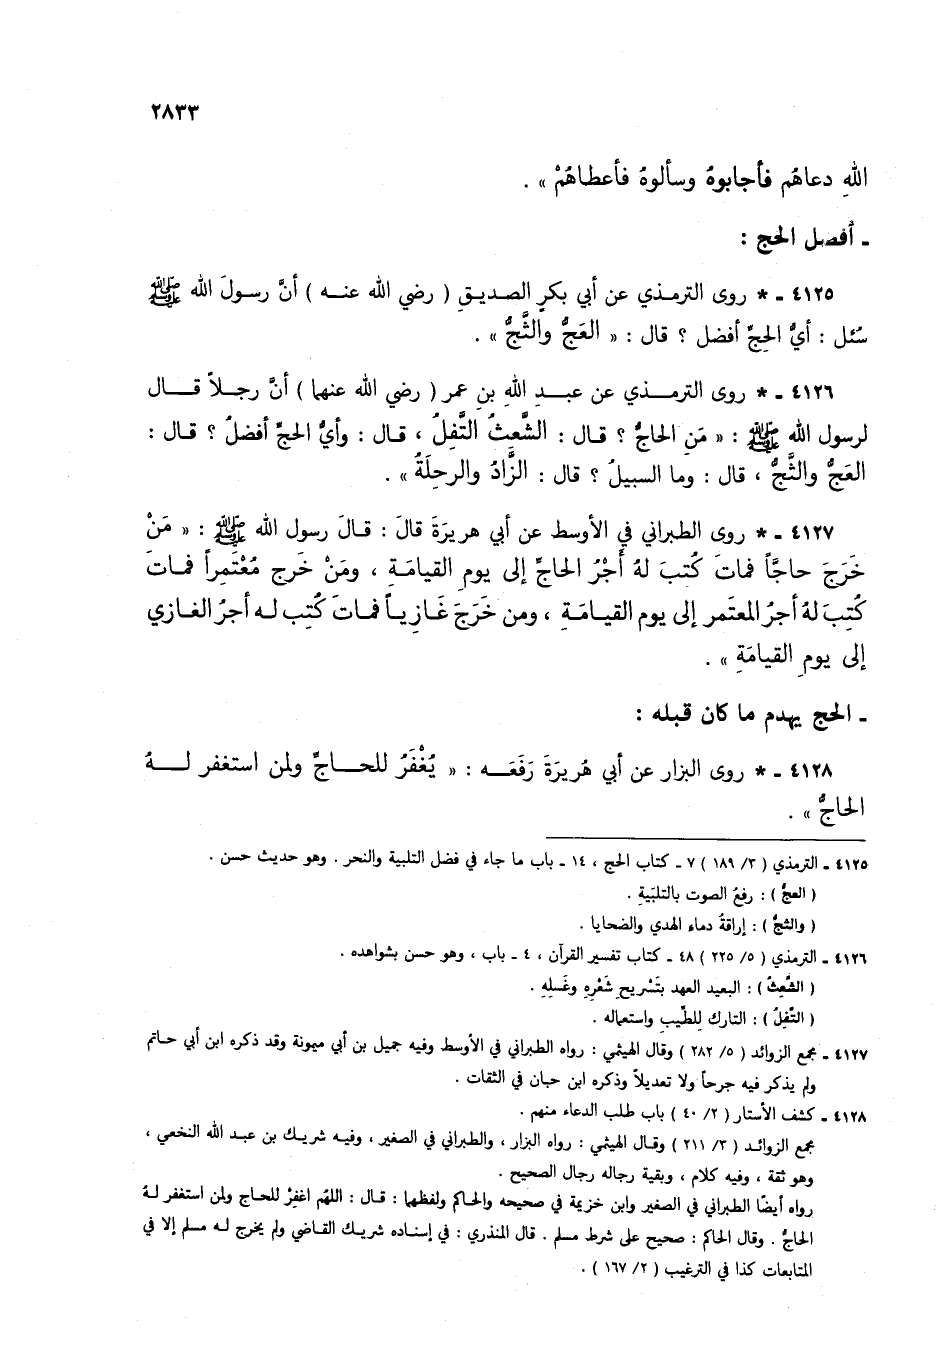 ٢٨٣٣
اللهِ دعاهُم فأجابوهُ وسألوهُ فأعطاهُمْ » .
ـ أفضل الحج :
٤١٢٥ ـ * روى الترمذي عن أبي بكرٍ الصديقِ ( رضي الله عنه ) أنَّ رسولَ الله ﷺ
سُئل : أيُّ الحجِّ أفضل ؟ قال : « العَجُّ والثَّجُّ » .
٤١٢٦ ـ * روى الترمذي عن عبدِ اللهِ بنِ عمر ( رضي الله عنهما ) أنَّ رجلاً قال
لرسول الله ﷺ : « مَنِ الحاجُّ ؟ قال : الشَّعِثُ التَّفِلُ ، قال : وأيُّ الحجِّ أفضلُ ؟ قال :
العَجُّ والثَّجُّ ، قال : وما السبيلُ ؟ قال : الزَّادُ والرحِلَةُ » .
٤١٢٧ ـ * روى الطبراني في الأوسط عن أبي هريرَةَ قالَ : قالَ رسول الله ﷺ : « مَنْ
خَرَجَ حاجَّاً فماتَ كُتبَ لهُ أَجْرُ الحاجِّ إلى يومِ القيامَةِ ، ومَنْ خَرج مُعْتَمِراً فماتَ
كُتِبَ لهُ أجرُ المعتَمر إلى يوم القيامَةِ ، ومن خَرَجَ غَازِياً فماتَ كُتِب له أجرُ الغازي
إلى يومِ القيامَةِ » .
ـ الحج يهدم ما كان قبله :
٤١٢٨ ـ * روى البزار عن أبي هُريرَةَ رَفَعَه : « يُغْفَرُ للحاجِّ ولمن استغفر لهُ
الحاجُّ » .
٤١٢٥ ـ الترمذي ( ٣/ ١٨٩ ) ٧ ـ كتاب الحج ، ١٤ ـ باب ما جاء في فضل التلبية والنحر . وهو حديث حسن .
( العجُّ ) : رفعُ الصوت بالتلبَيةِ .
( والثجُّ ) : إراقةُ دماء الهدي والضحايا .
٤١٢٦ ـ الترمذي ( ٥/ ٢٢٥ ) ٤٨ ـ كتاب تفسير القرآن ، ٤ ـ باب ، وهو حسن بشواهده .
( الشَّعِثُ ) : البعيد العهد بتَسْريحِ شَعْرِهِ وغَسلِهِ .
( التَّفِلُ ) : التارك لِلطِّيبِ واستعماله .
٤١٢٧ ـ مجمع الزوائد ( ٥/ ٢٨٢ ) وقال الهيثمي : رواه الطبراني في الأوسط وفيه جميل بن أبي ميمونة وقد ذكره ابن أبي حاتم
ولم يذكر فيه جرحاً ولا تعديلاً وذكره ابن حبان في الثقات .
٤١٢٨ ـ كشف الأستار ( ٢/ ٤٠ ) باب طلب الدعاء منهم .
مجمع الزوائد ( ٣/ ٢١١ ) وقال الهيثمي : رواه البزار ، والطبراني في الصغير ، وفيه شريك بن عبد الله النخعي ،
وهو ثقة ، وفيه كلام ، وبقية رجاله رجال الصحيح .
رواه أيضًا الطبراني في الصغير وابن خزيمة في صحيحه والحاكم ولفظهما : قال : اللهم اغفِرْ للحاج ولمن استغفر لهُ
الحاجُّ . وقال الحاكم : صحيح على شرط مسلم . قال المنذري : في إسناده شريك القاضي ولم يخرج له مسلم إلا في
المتابعات كذا في الترغيب ( ٢/ ١٦٧ ) .